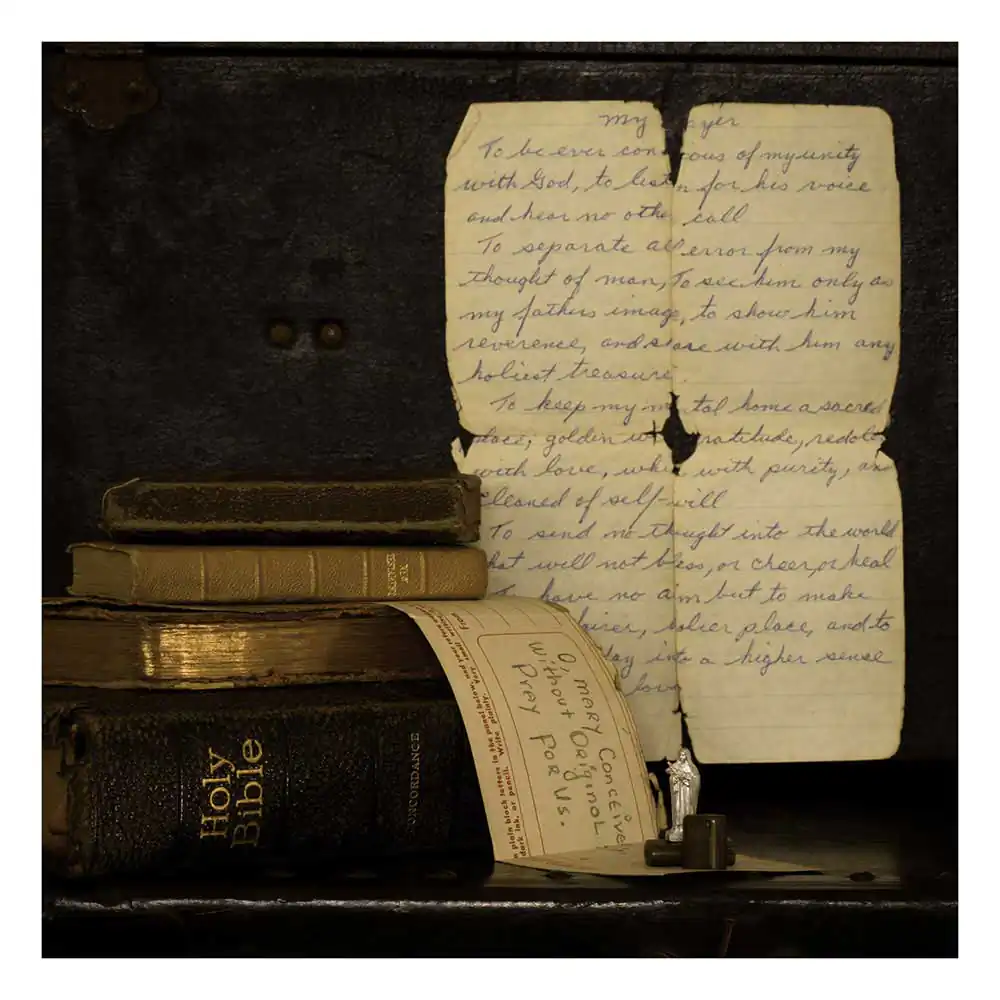 my
To be ever con ous of my unity
with God, to listen for his voice
and hear no othe call
To separate all error from my
thought of man, To see him only as
my fathers image, to show him
reverence, and s are with him any
holiest treasure
To keep my m tal home a sacred
place; golden wt ratitude, redole
with love, whi with purity, an
cleaned of self-will
To send no thought into the world
hat will not bless, or cheer, or heal
To have no aim but to make
holier place, and to
day into a higher sense
love
Holy
Bible
CONCORDANCE
From
plain block letters in the panel below,
Very small writing
dark ink, or pencil. Write plainly.
O, MARY Conceived
without Original
Pray for Us.